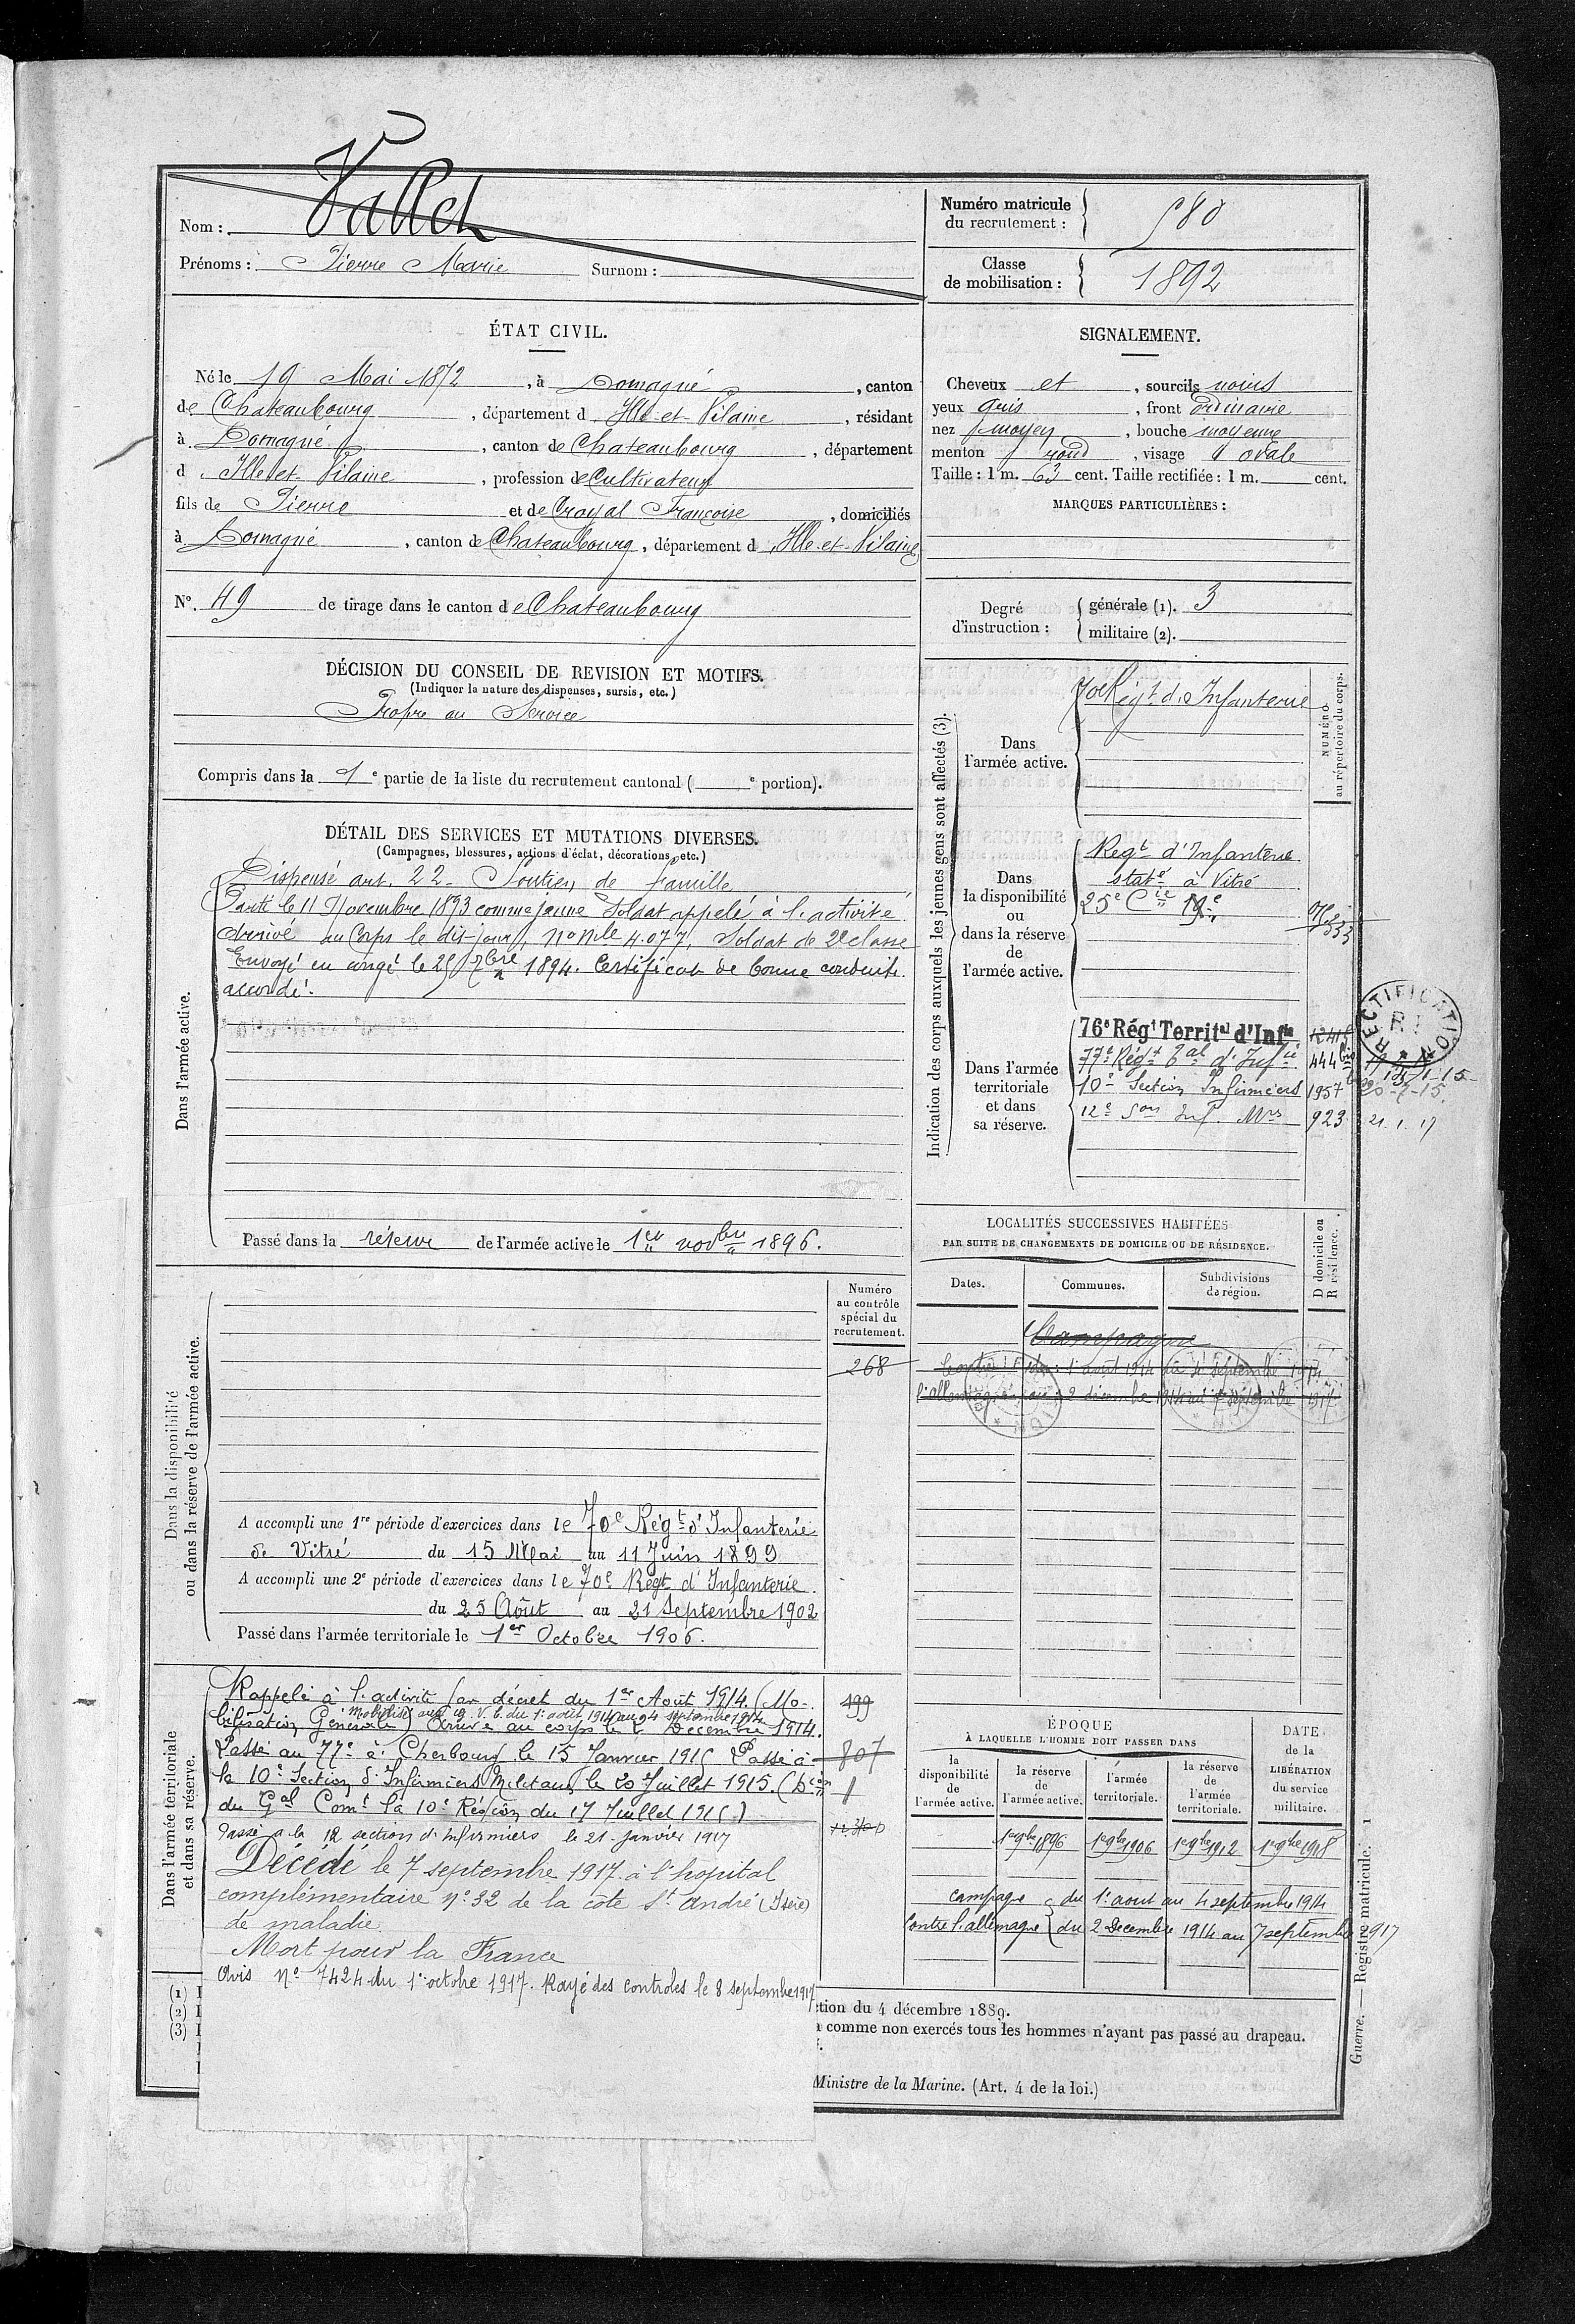 Nom : Vallet
Prénoms : Pierre Marie Surnom :
Numéro matricule du recrutement : 580
Classe de mobilisation : 1892
ÉTAT CIVIL.
Né le 19 Mai 1872, à Domagné, canton
de Chateaubourg, département d Ille-et-Vilaine, résidant
à Domagné, canton de Chateaubourg, département
d Ille-et-Vilaine, profession de Cultivateur
fils de Pierre et de Croyal Françoise, domiciliés
à Domagné, canton de Chateaubourg, département d Ille-et-Vilaine
N°. 49 de tirage dans le canton de Chateaubourg
SIGNALEMENT.
Cheveux et, sourcils noirs
yeux gris, front ordinaire
nez moyen, bouche moyenne
menton rond, visage ovale
Taille : 1 m. 63 cent. Taille rectifiée : 1 m. cent.
MARQUES PARTICULIÈRES :
Degré d'instruction : générale (1). 3
militaire (2).
DÉCISION DU CONSEIL DE REVISION ET MOTIFS.
(Indiquer la nature des dispenses, sursis, etc.)
Propre au Service
Compris dans la 1e partie de la liste du recrutement cantonal ( e portion).
DÉTAIL DES SERVICES ET MUTATIONS DIVERSES.
(Campagnes, blessures, actions d'éclat, décorations, etc.)
Dans l'armée active.
Dispensé art. 22 - Soutien de famille
Parti le 11 Novembre 1893 comme jeune Soldat appelé à l'activité
Arrivé au Corps le dit jour, No Mle 4.077, Soldat de 2e classe
Envoyé en congé le 25 7bre 1894. Certificat de bonne conduite
accordé.
Passé dans la réserve de l'armée active le 1er novbre 1896.
Indication des corps auxquels les jeunes gens sont affectés (3).
NUMÉRO au répertoire du corps.
Dans l'armée active.
70e Régt d'Infanterie
Dans la disponibilité ou dans la réserve de l'armée active.
Regt d'Infanterie
statné à Vitré
25e Cie 19e
Dans l'armée territoriale et dans sa réserve.
76e Régt Territal d'Infie
77e Régt Tal d'Infie 444 bis
10e Section Infirmiers 1957 20-7-15
12e Son Inf. Mres 923 21.1.17
RECTIFICATION
LOCALITÉS SUCCESSIVES HABITÉES
PAR SUITE DE CHANGEMENTS DE DOMICILE OU DE RÉSIDENCE.
Dates. Communes. Subdivisions de région. D domicile ou R résidence.
Campagne
Contre du 1er août 1914 au 4 septembre 1914
l'allemagne du 2 décembre 1914 au 7 septembre 1917
Dans la disponibilité ou dans la réserve de l'armée active.
Numéro au contrôle spécial du recrutement.
268
A accompli une 1re période d'exercices dans le 70e Régt d'Infanterie
de Vitré du 15 Mai au 11 Juin 1899
A accompli une 2e période d'exercices dans le 70e Régt d'Infanterie
du 25 Août au 21 Septembre 1902
Passé dans l'armée territoriale le 1er Octobre 1906.
Dans l'armée territoriale et dans sa réserve.
Rappelé à l'activité par décret du 1er Août 1914. (Mo- 199
Mobilisé aux G. V. C. du 1er août 1914 au 4 septembre 1914
bilisation Générale) Arrivé au corps le 2 Décembre 1914.
Passé au 77e à Cherbourg le 15 Janvier 1915 Passé à 807
la 10e Section d'Infirmiers Militaires le 20 Juillet 1915. (Dcon
du Gal Comt la 10e Région du 17 Juillet 1915)
Passé à la 12 section d'infirmiers le 21 janvier 1917
Décédé le 7 septembre 1917 à l'hopital
complémentaire n° 32 de la côte St André (Isère)
de maladie
Mort pour la France
Avis N° 7424 du 1er octobre 1917. Rayé des controles le 8 septembre 1917
ÉPOQUE
À LAQUELLE L'HOMME DOIT PASSER DANS
la disponibilité de l'armée active.
la réserve de l'armée active.
l'armée territoriale.
la réserve de l'armée territoriale.
DATE de la LIBÉRATION du service militaire.
1er 9bre 1896 1er 9bre 1906 1er 9bre 1912 1er 9bre 1918
campagne du 1er aout au 4 septembre 1914
Contre l'allemagne du 2 Decembre 1914 au 7 septembre 1917
(1) I
(2) I
(3) I
ction du 4 décembre 1889.
comme non exercés tous les hommes n'ayant pas passé au drapeau.
Ministre de la Marine. (Art. 4 de la loi.)
Guerre. — Registre matricule. 1